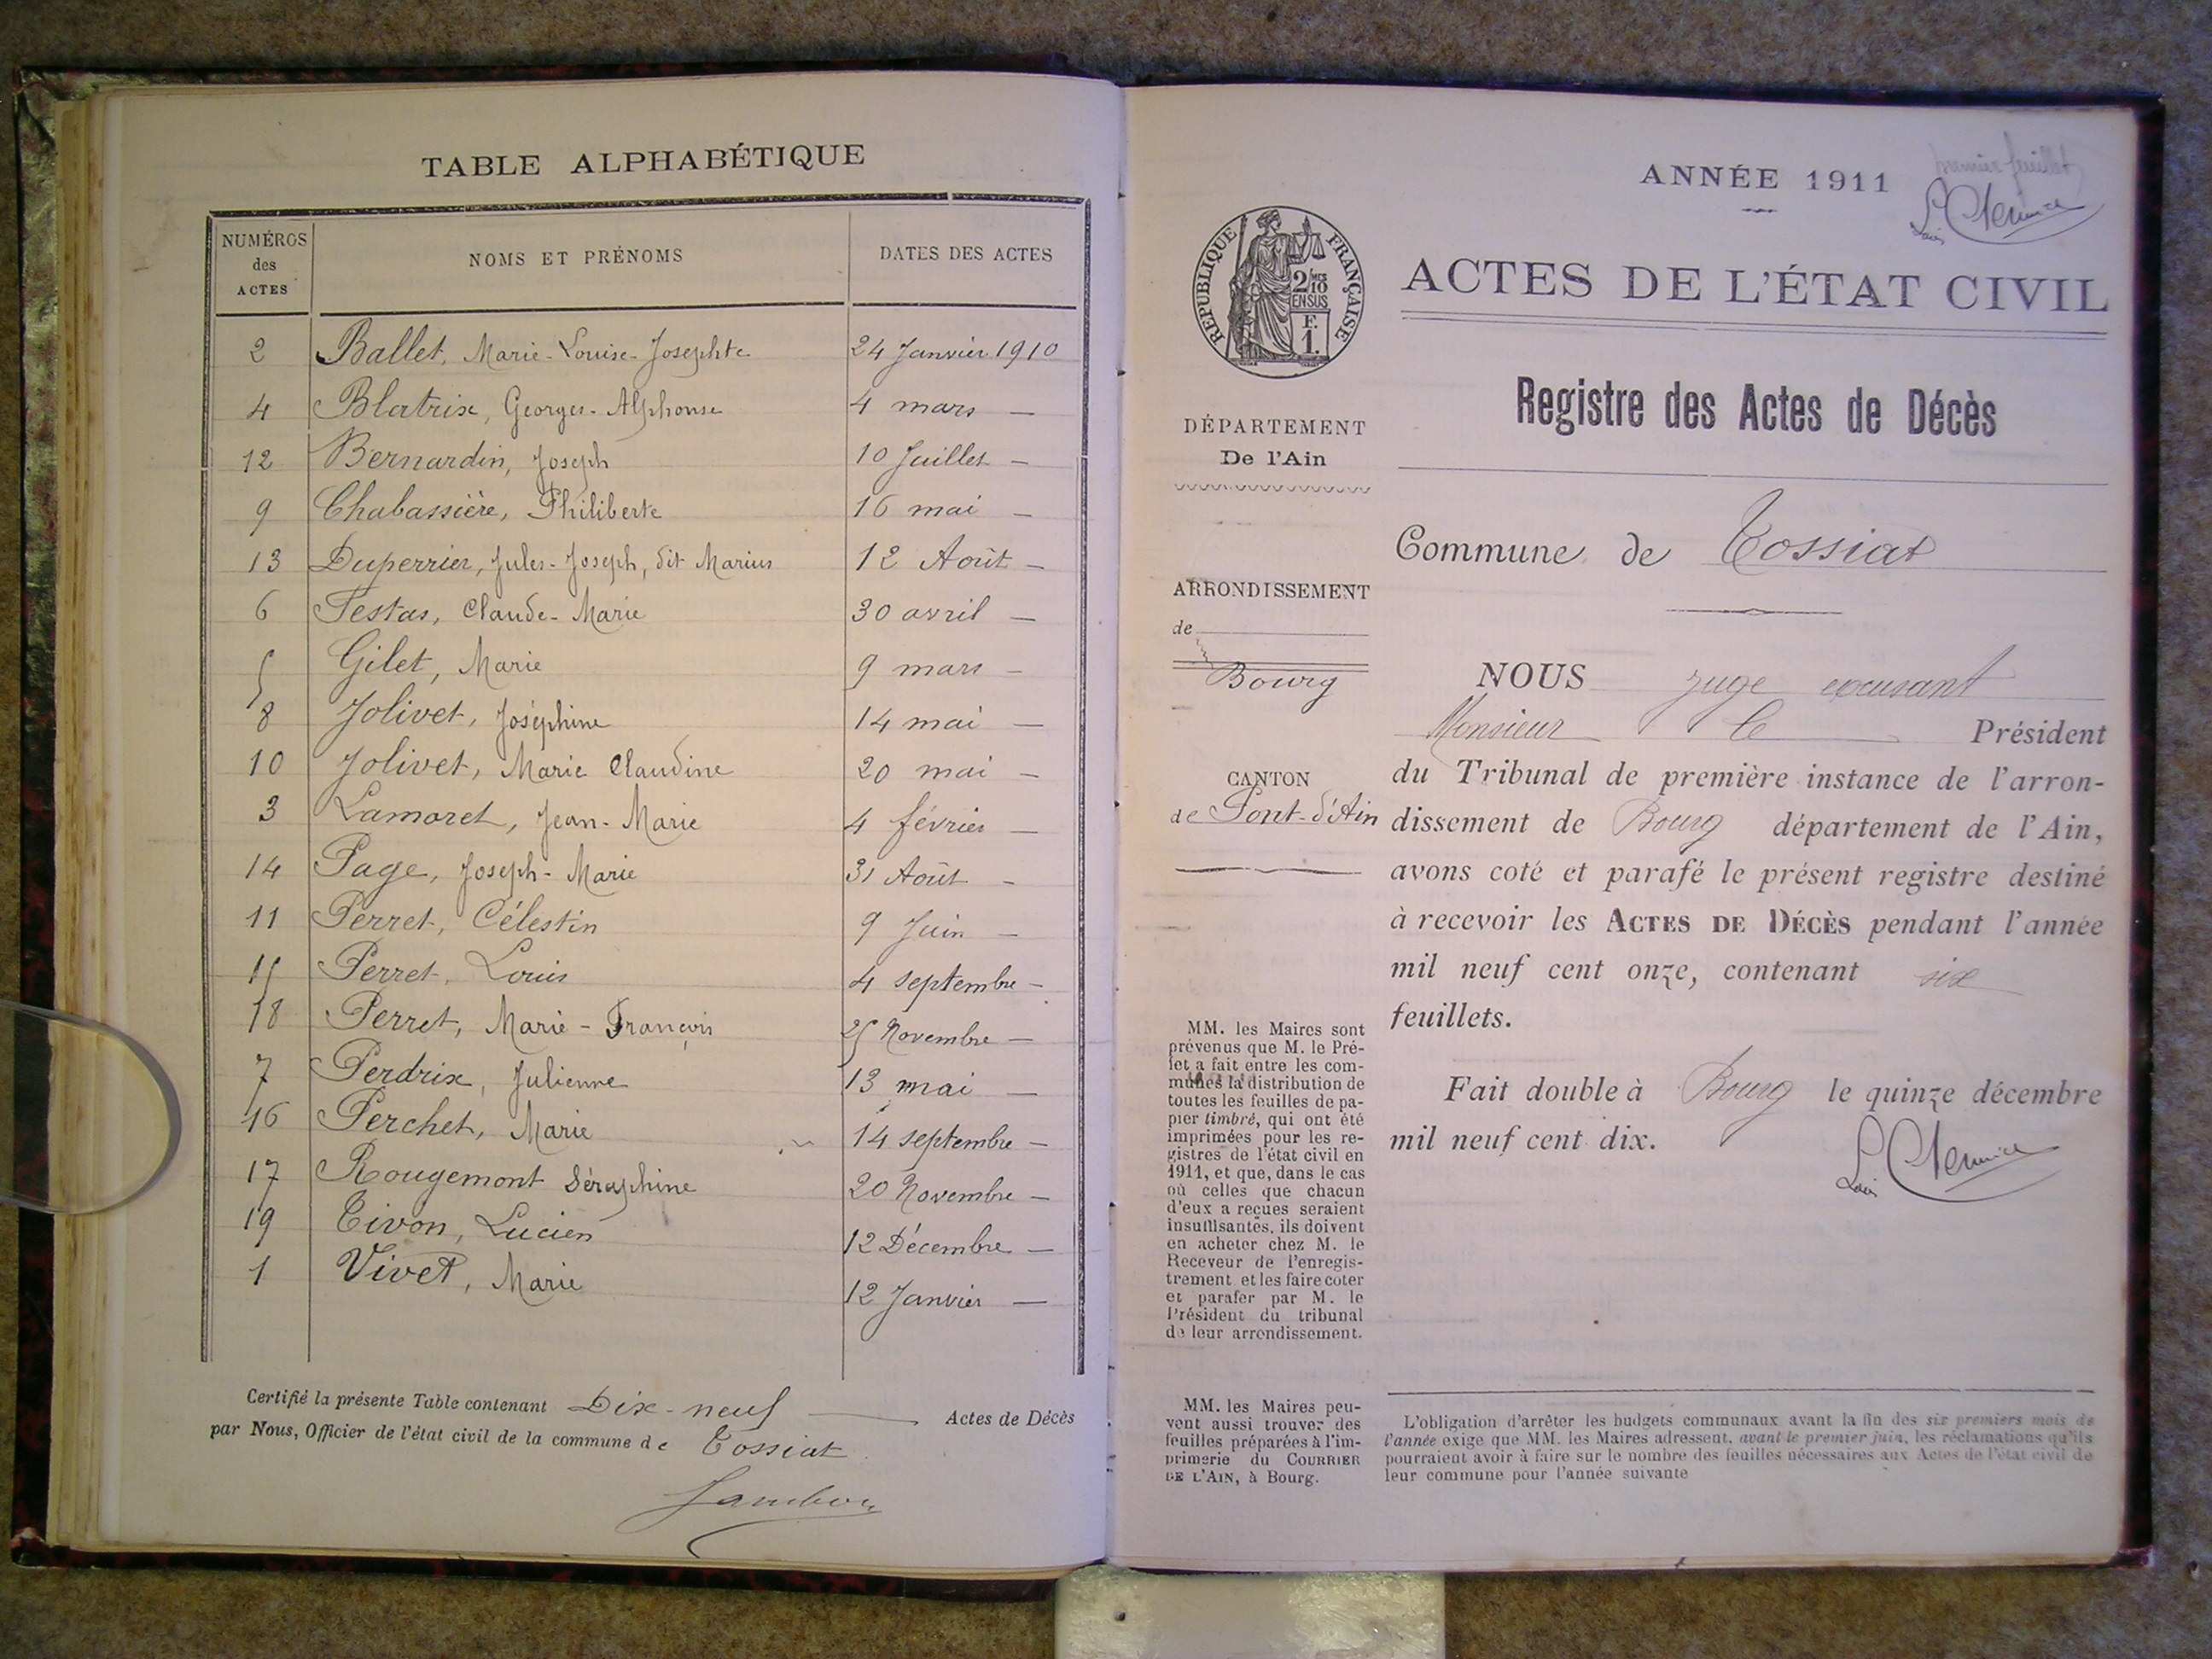 TABLE ALPHABÉTIQUE
NUMÉROS des ACTES
NOMS ET PRÉNOMS
DATES DES ACTES
2 Ballet, Marie-Louise-Josephte 24 Janvier 1910
4 Blatrix, Georges-Alphonse 4 mars —
12 Bernardin, Joseph 10 Juillet —
9 Chabassière, Philiberte 16 mai —
13 Duperrier, Jules-Joseph, dit Marius 12 Août —
6 Festas, Claude-Marie 30 avril —
5 Gilet, Marie 9 mars —
8 Jolivet, Joséphine 14 mai —
10 Jolivet, Marie Claudine 20 mai —
3 Lamoret, Jean-Marie 4 février —
14 Page, Joseph-Marie 31 Août —
11 Perret, Célestin 9 Juin —
15 Perret, Louis 4 septembre —
18 Perret, Marie-François 25 Novembre —
7 Perdrix, Julienne 13 mai —
16 Perchet, Marie 14 septembre —
17 Rougemont Séraphine 20 Novembre —
19 Tivon, Lucien 12 Décembre —
1 Vivet, Marie 12 Janvier —
Certifié la présente Table contenant Dix-neuf — Actes de Décès
par Nous, Officier de l'état civil de la commune de Tossiat
Jambon
premier feuillet
ANNÉE 1911
RÉPUBLIQUE FRANÇAISE
2/10 EN SUS
F. 1.
ACTES DE L'ÉTAT CIVIL
Registre des Actes de Décès
DÉPARTEMENT
De l'Ain
Commune de Tossiat
ARRONDISSEMENT
de
Bourg
CANTON
de Pont-d'Ain
NOUS juge excusant
Monsieur le Président
du Tribunal de première instance de l'arron-
dissement de Bourg département de l'Ain,
avons coté et parafé le présent registre destiné
à recevoir les ACTES DE DÉCÈS pendant l'année
mil neuf cent onze, contenant six
feuillets.
Fait double à Bourg le quinze décembre
mil neuf cent dix.
MM. les Maires sont
prévenus que M. le Pré-
fet a fait entre les com-
munes la distribution de
toutes les feuilles de pa-
pier timbré, qui ont été
imprimées pour les re-
gistres de l'état civil en
1911, et que, dans le cas
où celles que chacun
d'eux a reçues seraient
insuffisantes, ils doivent
en acheter chez M. le
Receveur de l'enregis-
trement et les faire coter
et parafer par M. le
Président du tribunal
de leur arrondissement.
MM. les Maires peu-
vent aussi trouver des
feuilles préparées à l'im-
primerie du COURRIER
DE L'AIN, à Bourg.
L'obligation d'arrêter les budgets communaux avant la fin des six premiers mois de
l'année exige que MM. les Maires adressent, avant le premier juin, les réclamations qu'ils
pourraient avoir à faire sur le nombre des feuilles nécessaires aux Actes de l'état civil de
leur commune pour l'année suivante